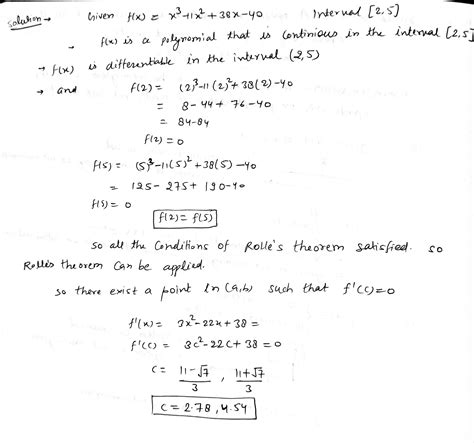 Solution → Given f(x) = x³-11x²+38x-40 Interval [2,5]
→ f(x) is a polynomial that is continious in the interval [2,5]
→ f(x) is differentiable in the interval (2,5)
→ and f(2) = (2)³-11(2)²+38(2)-40
= 8-44+76-40
= 84-84
f(2) = 0
f(5) = (5)³-11(5)²+38(5)-40
= 125-275+190-40
f(5) = 0
f(2) = f(5)
so all the conditions of Rolle's theorem satisfied. so
Rolle's theorem can be applied.
so there exist a point in (a,b) such that f'(c)=0
f'(x) = 3x²-22x+38 =
f'(c) = 3c²-22c+38 = 0
c = 11-√7/3 , 11+√7/3
c = 2.78, 4.54